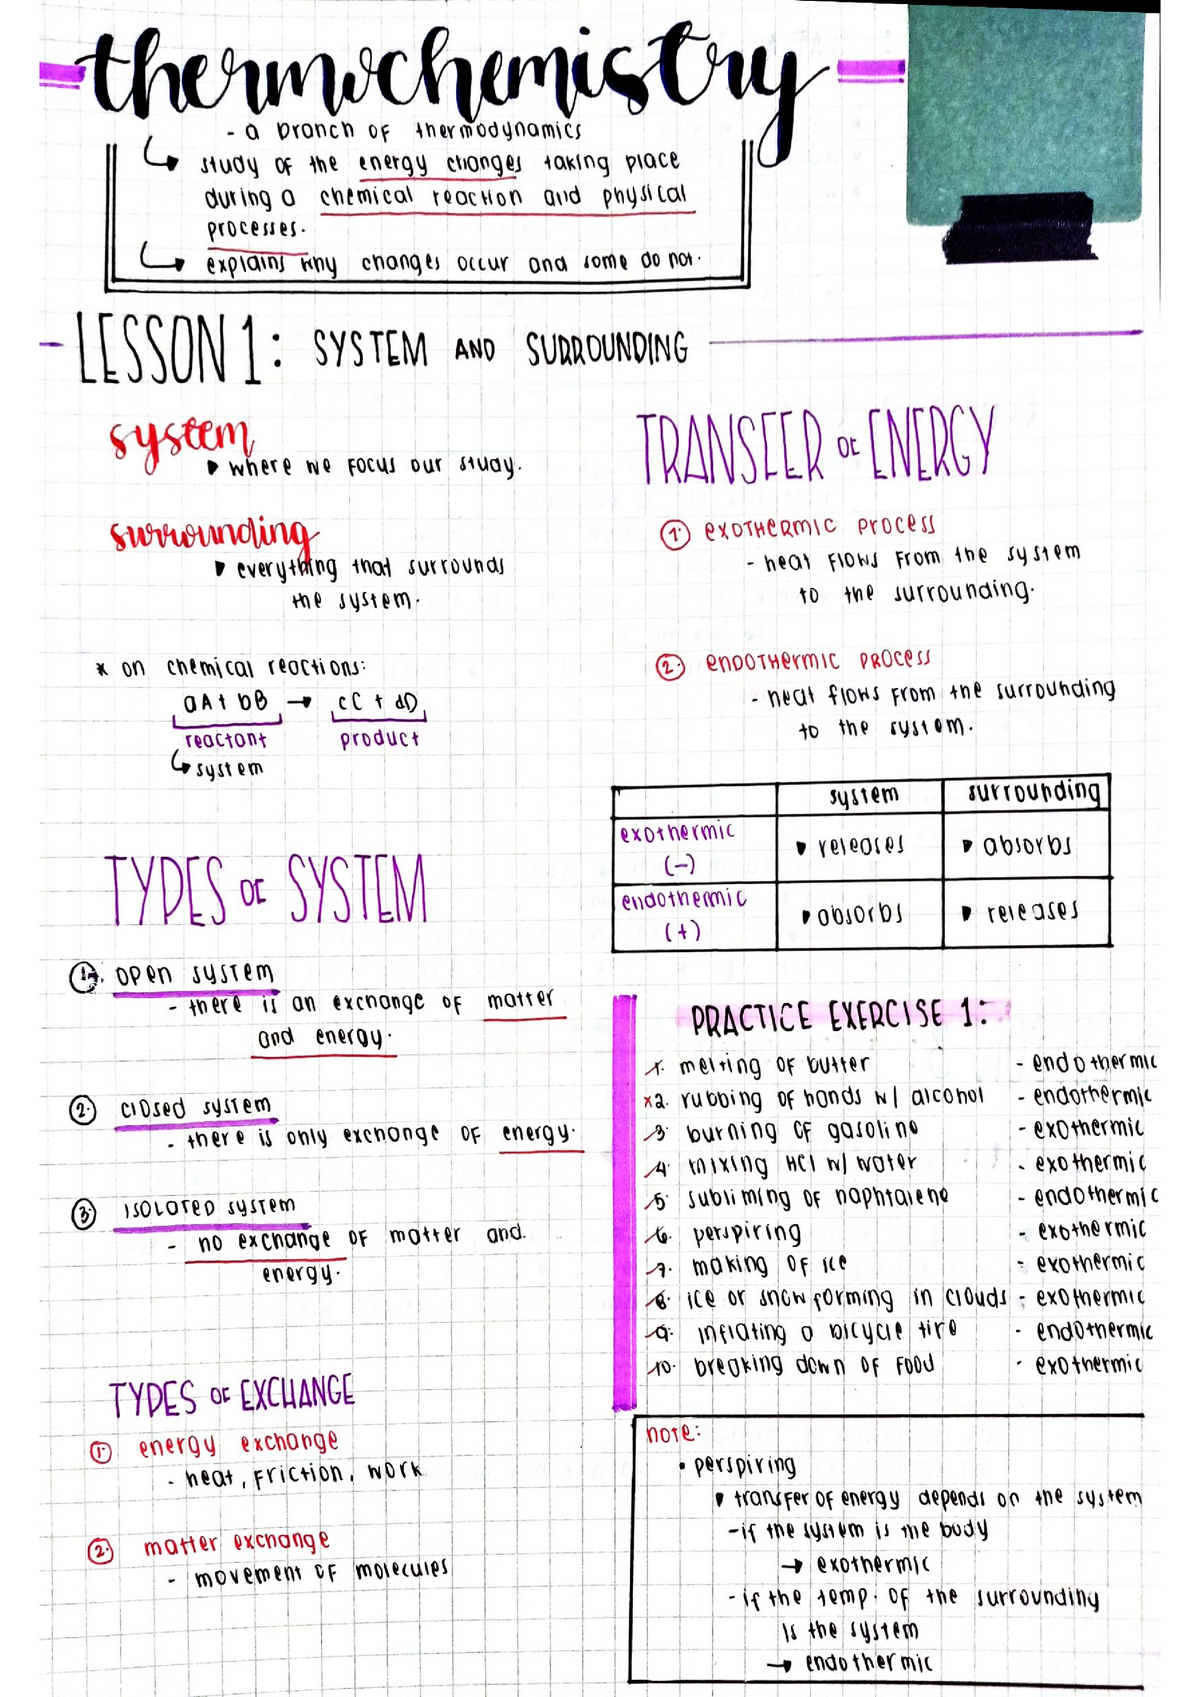 thermochemistry
- a branch of thermodynamics
study of the energy changes taking place
during a chemical reaction and physical
processes.
explains why changes occur and some do not.
LESSON 1: SYSTEM AND SURROUNDING
system
where we focus our study.
surrounding
everything that surrounds
the system.
* on chemical reactions:
aA + bB → cC + dD
reactant product
system
TYPES OF SYSTEM
1. open system
- there is an exchange of matter
and energy.
2. closed system
- there is only exchange of energy.
3. ISOLATED system
- no exchange of matter and
energy.
TYPES OF EXCHANGE
1. energy exchange
- heat, friction, work
2. matter exchange
- movement of molecules
TRANSFER OF ENERGY
1. exothermic process
- heat flows from the system
to the surrounding.
2. endothermic process
- heat flows from the surrounding
to the system.
system surrounding
exothermic (-) releases absorbs
endothermic (+) absorbs releases
PRACTICE EXERCISE 1:
1. melting of butter - endothermic
x2. rubbing of hands w/ alcohol - endothermic
3. burning of gasoline - exothermic
4. mixing HCl w/ water - exothermic
5. subliming of naphtalene - endothermic
6. perspiring - exothermic
7. making of ice - exothermic
8. ice or snow forming in clouds - exothermic
9. inflating a bicycle tire - endothermic
10. breaking down of food - exothermic
note:
• perspiring
transfer of energy depends on the system
- if the system is the body
→ exothermic
- if the temp. of the surrounding
is the system
→ endothermic